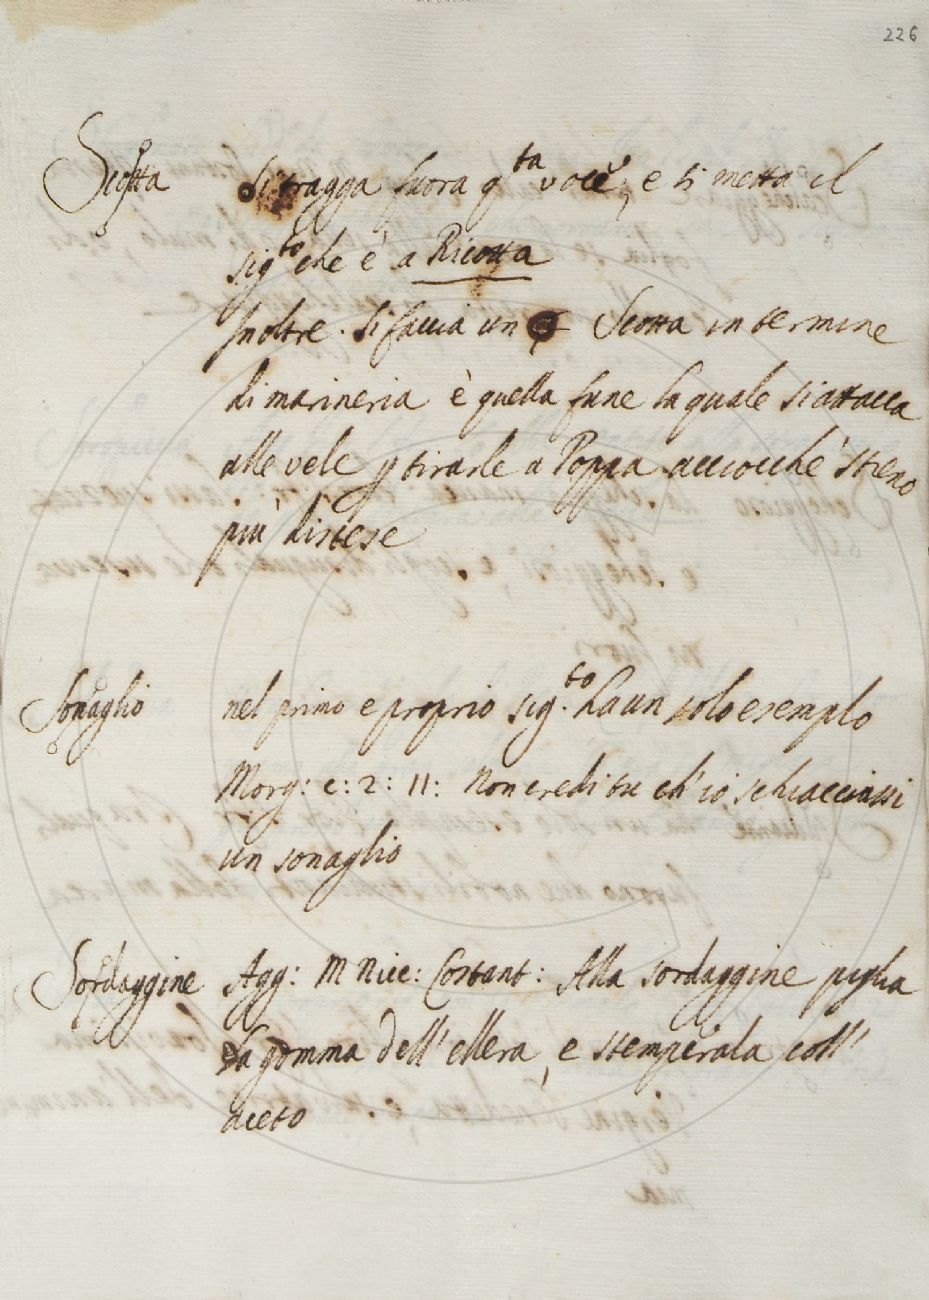 226
Scotta Si tragga fuora q.ta voce, e si metta il
sig.to che è a Ricotta
Inoltre. Si faccia un Scotta in termine
di marineria è quella fune la quale si attacca
alle vele p tirarle a Poppa acciocchè stieno
più distese
Sonaglio nel primo e proprio sig.to ha un solo esemplo
Morg: c: 2: 11: Non credi tu ch'io schiacciassi
un sonaglio
Sordaggine Agg: M Nicc: Costant: Alla sordaggine piglia
la gomma dell'ellera, e stemperala coll'
aceto